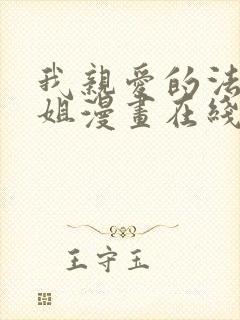 我親愛的法
姐漫畫在綫
王守玉